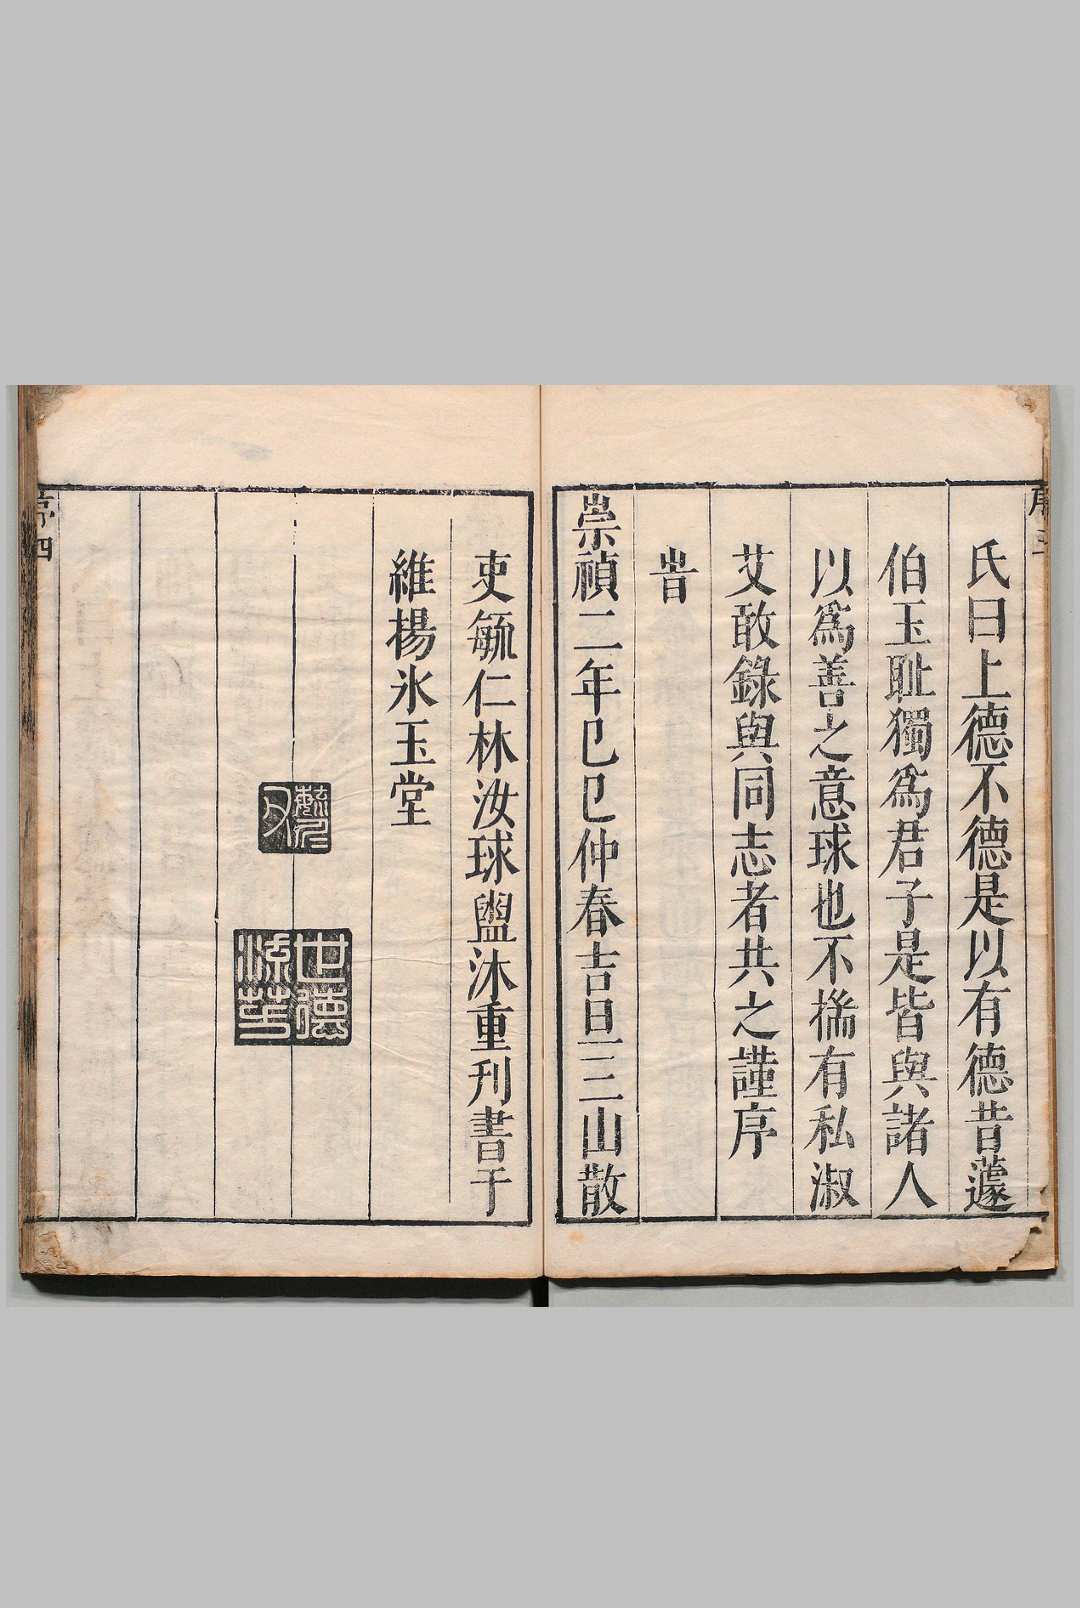 氏曰上德不德是以有德昔蘧
伯玉耻獨爲君子是皆與諸人
以爲善之意球也不擕有私淑
艾敢錄與同志者共之謹序
旹
崇禎二年己巳仲春吉旦三山散
吏毓仁林汝球盥沐重刊書于
維楊氷玉堂
世德
序四